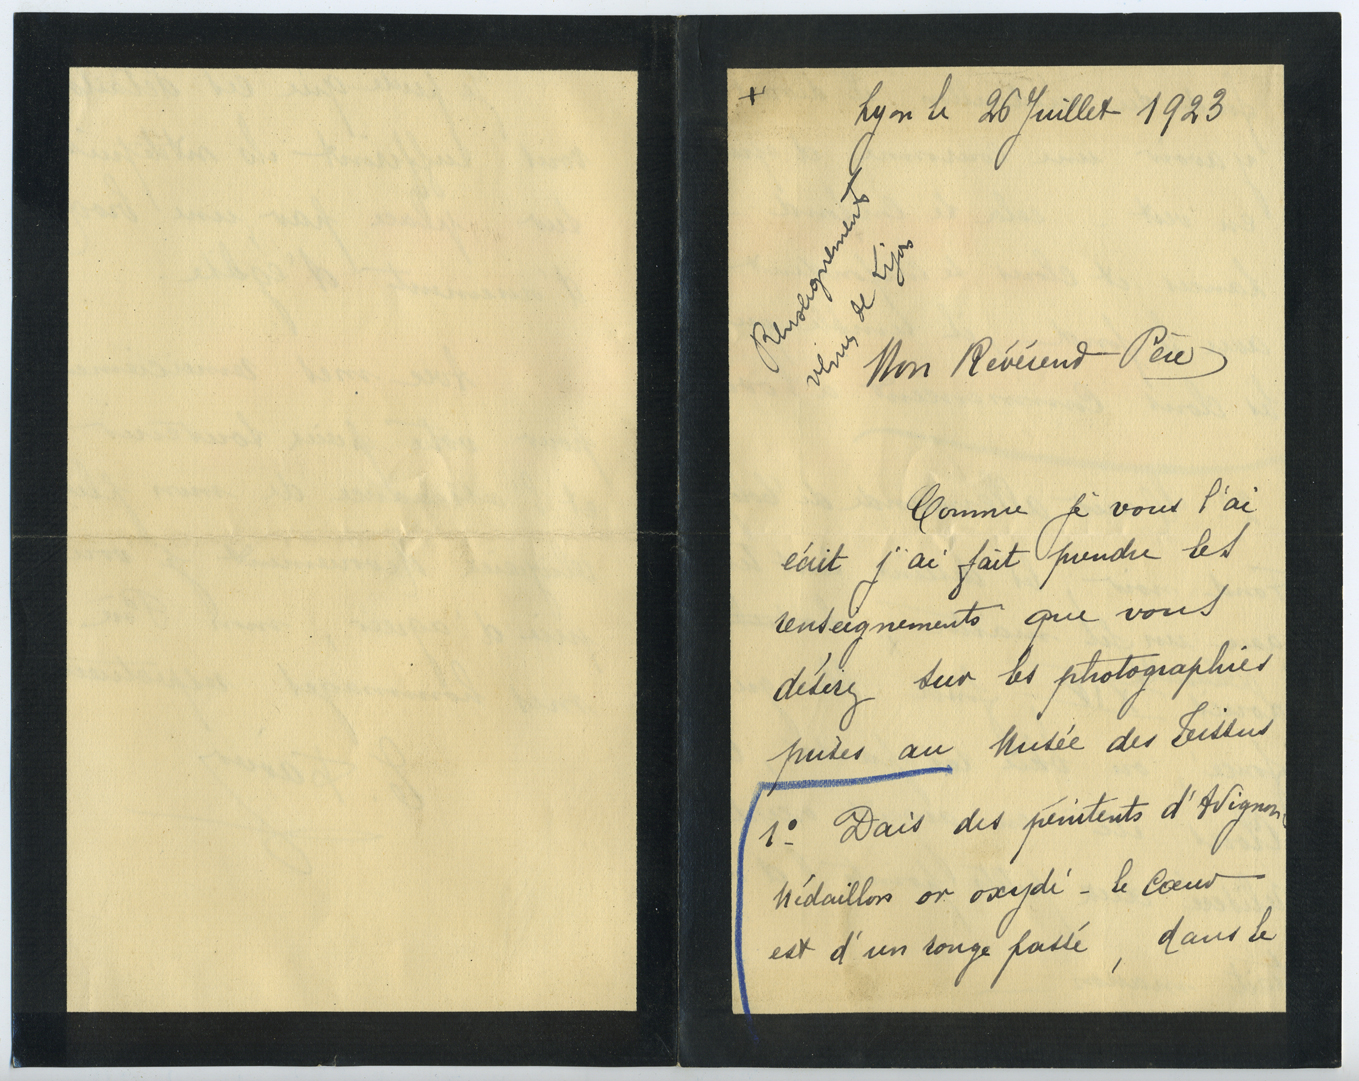 +
Lyon le 26 Juillet 1923
Renseignements
venus de Lyon
Mon Révérend Père
Comme je vous l'ai
écrit j'ai fait prendre les
renseignements que vous
désirez sur les photographies
prises au Musée des Tissus
1º Dais des pénitents d'Avignon
Médaillons or oxydé - le Cœur
est d'un rouge passé, dans le